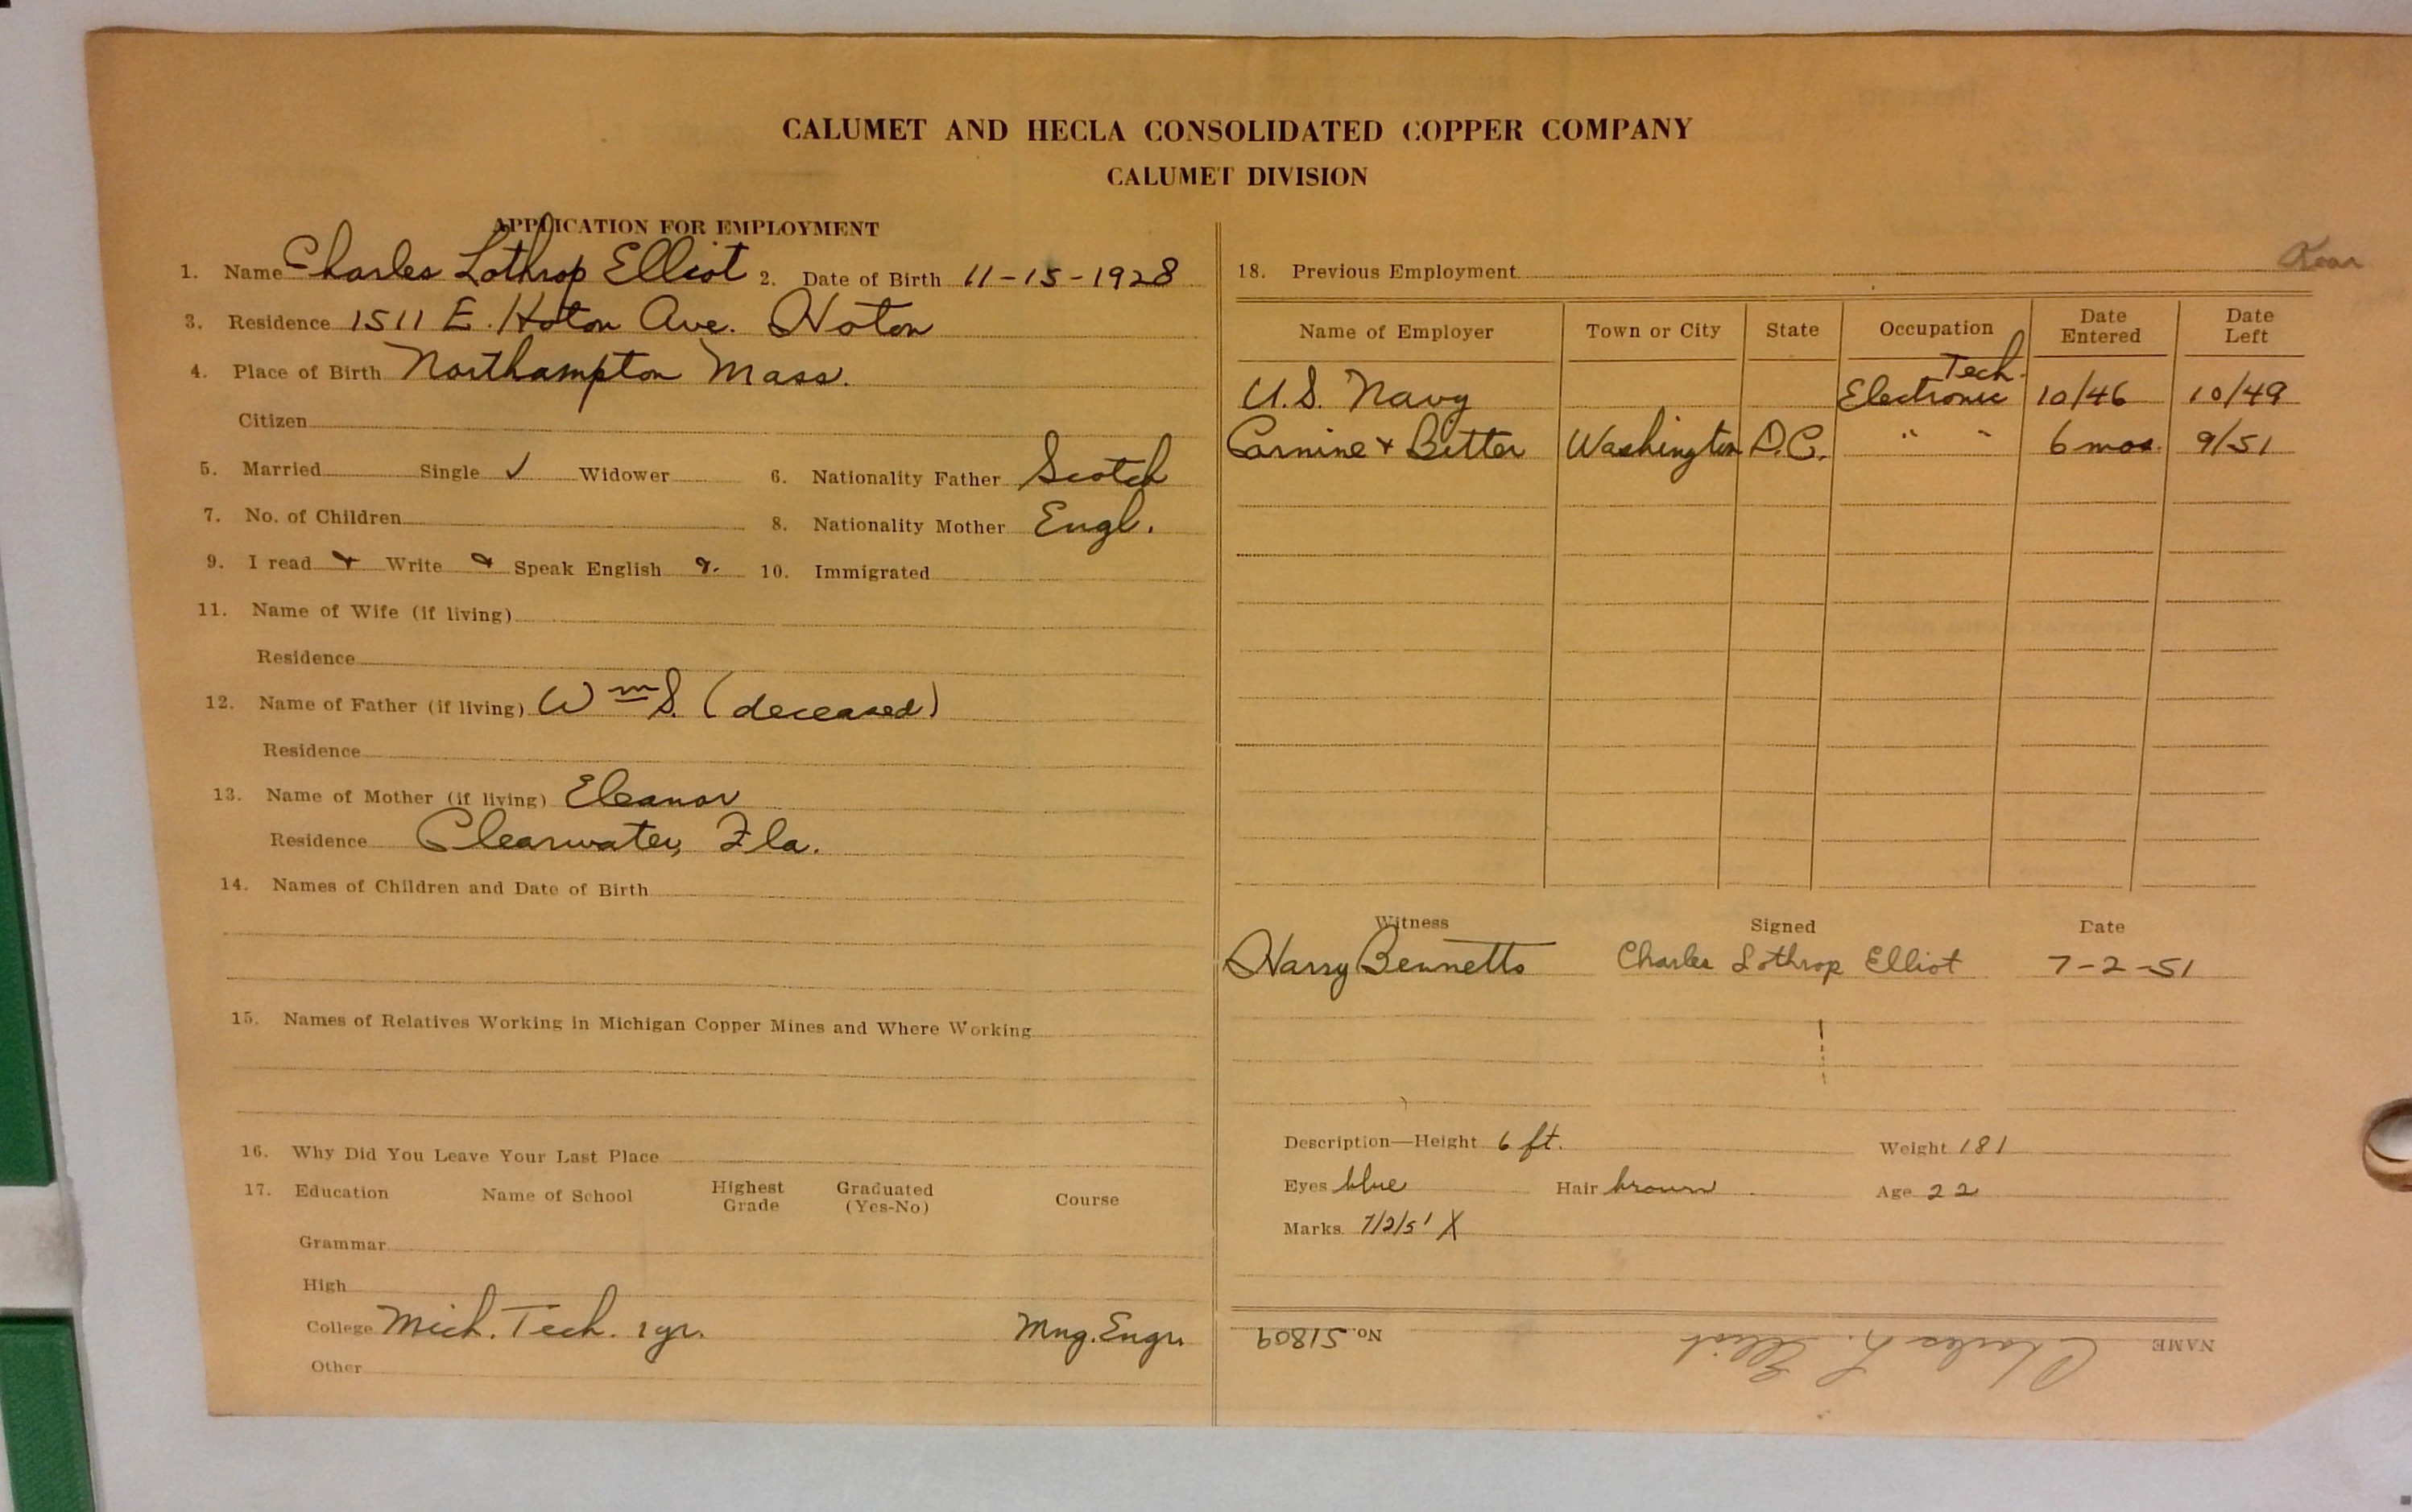 CALUMET AND HECLA CONSOLIDATED COPPER COMPANY
CALUMET DIVISION
APPLICATION FOR EMPLOYMENT
1. Name Charles Lothrop Elliot 2. Date of Birth 11-15-1928
3. Residence 1511 E. Hoton Ave. Hoton
4. Place of Birth Northampton Mass.
Citizen
5. Married Single ✓ Widower 6. Nationality Father Scotch
7. No. of Children 8. Nationality Mother Engl.
9. I read Write Speak English 10. Immigrated
11. Name of Wife (if living)
Residence
12. Name of Father (if living) Wm S. (deceased)
Residence
13. Name of Mother (if living) Eleanor
Residence Clearwater, Fla.
14. Names of Children and Date of Birth
15. Names of Relatives Working in Michigan Copper Mines and Where Working
16. Why Did You Leave Your Last Place
17. Education Name of School Highest Grade Graduated (Yes-No) Course
Grammar
High
College Mich. Tech. 1 yr. Mng. Engr.
Other
18. Previous Employment
Name of Employer Town or City State Occupation Date Entered Date Left
U.S. Navy Electronic Tech. 10/46 10/49
Carnine + Bitter Washington D.C. " " 6 mos. 9/51
Witness Signed Date
Harry Bennetts Charles Lothrop Elliot 7-2-51
Description—Height 6 ft. Weight 181
Eyes blue Hair brown Age 22
Marks 7/2/51 X
NAME Charles L. Elliot No. 51809